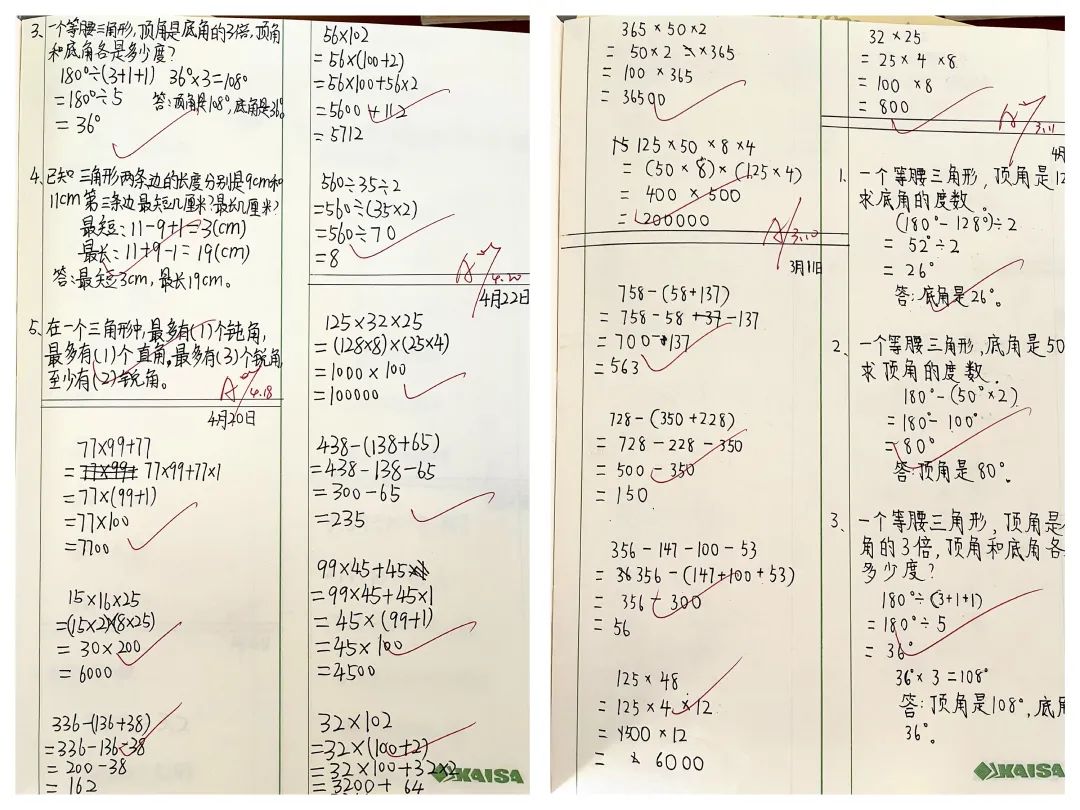 3、一个等腰三角形,顶角是底角的3倍,顶角
和底角各是多少度?
180°÷(3+1+1) 36°×3=108°
=180°÷5 答:顶角是108°,底角是36°
=36°
4、已知三角形两条边的长度分别是9cm和
11cm第三条边最短几厘米?最长几厘米?
最短:11-9+1=3(cm)
最长:11+9-1=19(cm)
答:最短3cm,最长19cm。
5、在一个三角形中,最多有(1)个钝角,
最多有(1)个直角,最多有(3)个锐角,
至少有(2)锐角。
4.18
4月20日
77×99+77
=77×99+ 77×99+77×1
=77×(99+1)
=77×100
=7700
15×16×25
=(15×2)×(8×25)
=30×200
=6000
336-(136+38)
=336-136-38
=200-38
=162
56×102
=56×(100+2)
=56×100+56×2
=5600+112
=5712
560÷35÷2
=560÷(35×2)
=560÷70
=8
4.20
4月22日
125×32×25
=(128×8)×(25×4)
=1000×100
=100000
438-(138+65)
=438-138-65
=300-65
=235
99×45+45
=99×45+45×1
=45×(99+1)
=45×100
=4500
32×102
=32×(100+2)
=32×100+32×2
=3200+64
KAISA
365×50×2
=50×2×365
=100×365
=36500
125×50×8×4
=(50×8)×(125×4)
=400×500
=200000
3.10
3月11日
758-(58+137)
=758-58+37-137
=700-137
=563
728-(350+228)
=728-228-350
=500-350
=150
356-147-100-53
=356-(147+100+53)
=356-300
=56
125×48
=125×4×12
=500×12
=6000
32×25
=25×4×8
=100×8
=800
3.11
1、一个等腰三角形,顶角是12
求底角的度数.
(180°-128°)÷2
=52°÷2
=26°
答:底角是26°。
2、一个等腰三角形,底角是50
求顶角的度数.
180°-(50°×2)
=180°-100°
=80°
答:顶角是80°。
3、一个等腰三角形,顶角是
角的3倍,顶角和底角各
多少度?
180°÷(3+1+1)
=180°÷5
=36°
36°×3=108°
答:顶角是108°,底
36°。
KAISA